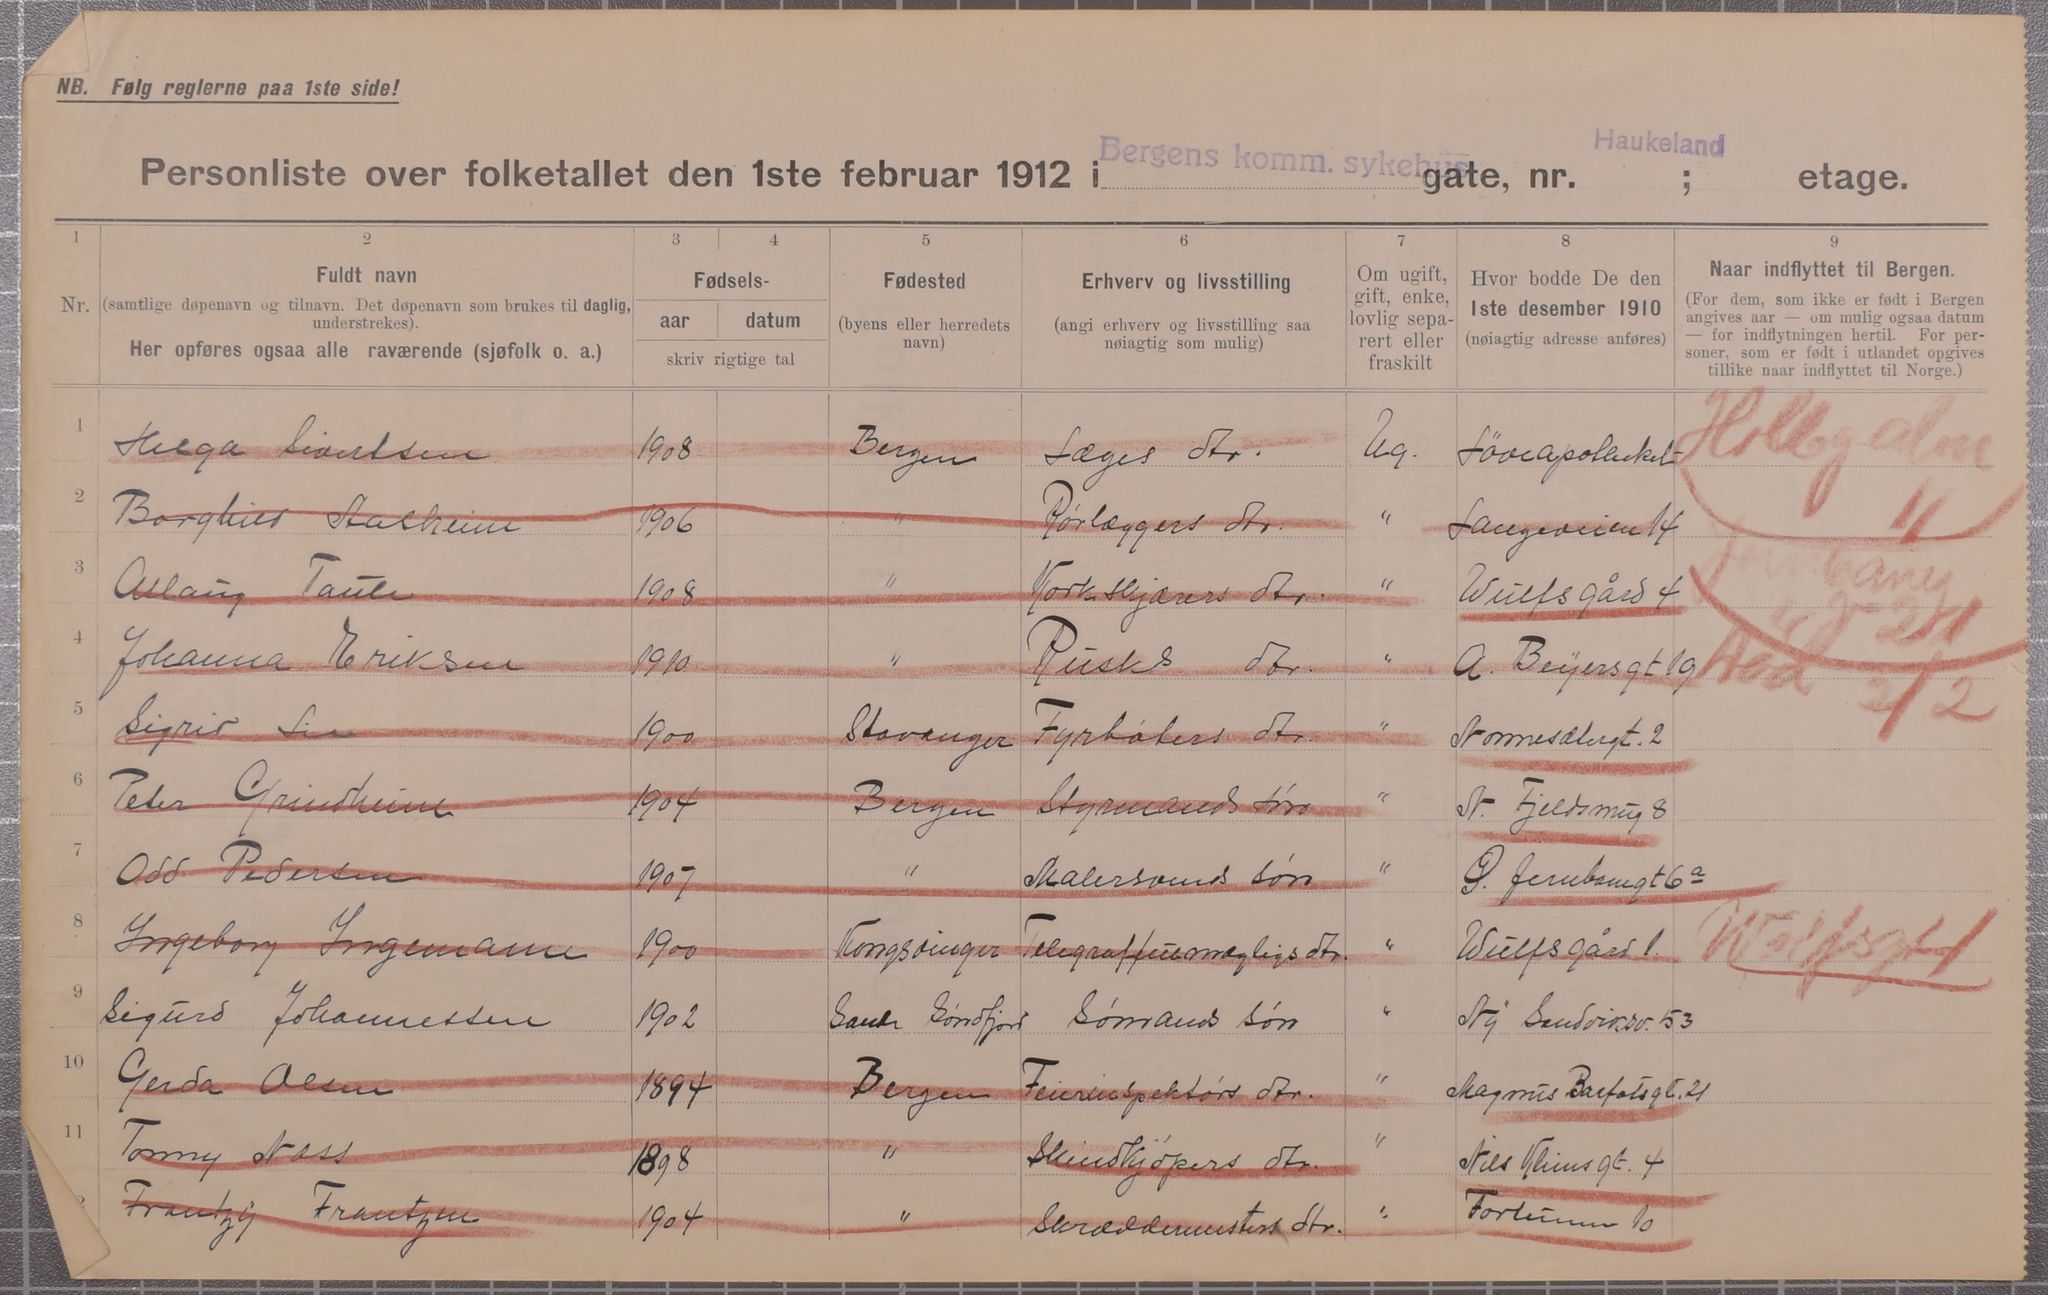 NB. Følg reglerne paa 1ste side!
Personliste over folketallet den 1ste februar 1912 i Bergens komm. sykehus gate, nr. Haukeland ; etage.
1 2 3 4 5 6 7 8 9
Nr.
Fuldt navn
(samtlige døpenavn og tilnavn. Det døpenavn som brukes til daglig,
understrekes).
Her opføres ogsaa alle raværende (sjøfolk o. a.)
Fødsels-
aar datum
skriv rigtige tal
Fødested
(byens eller herredets
navn)
Erhverv og livsstilling
(angi erhverv og livsstilling saa
nøiagtig som mulig)
Om ugift,
gift, enke,
lovlig sepa-
rert eller
fraskilt
Hvor bodde De den
1ste desember 1910
(nøiagtig adresse anføres)
Naar indflyttet til Bergen.
(For dem, som ikke er født i Bergen
angives aar — om mulig ogsaa datum
— for indflytningen hertil. For per-
soner, som er født i utlandet opgives
tillike naar indflyttet til Norge.)
1 Helga Sivertsen 1908 Bergen Læges dtr. Ug. Löveapotheket
2 Borghild Stalheim 1906 " Rörlæggers dtr. " Langeveien 14
3 Aslaug Taule 1908 " Korkskjærers dtr. " Wulfsgård 4
4 Johanna Eriksen 1910 " Rusks dtr. " A. Beyersgt 19
5 Sigrid Lie 1900 Stavanger Fyrböters dtr. " Nonnesætergt. 2
6 Peter Grindheim 1904 Bergen Styrmands sön " N. Fjeldsmug 8
7 Odd Pedersen 1907 " Malersvends sön " G. Jernbanegt 6a
8 Ingeborg Ingemann 1900 Kongsvinger Telegraffuldmægtigs dtr. " Wulfsgård 1. Wulfsgd 1
9 Sigurd Johannessen 1902 Sande Söndfjord Sömands sön " Ny Sandviksv. 53
10 Gerda Olsen 1894 Bergen Feierinspektörs dtr. " Magnus Barfotsgt. 21
11 Tonny Næss 1898 " Skindkjöpers dtr. " Nils Klimsgt. 4
Frantzy Frantzen 1904 " Skræddermesters dtr. " Fortunen 10